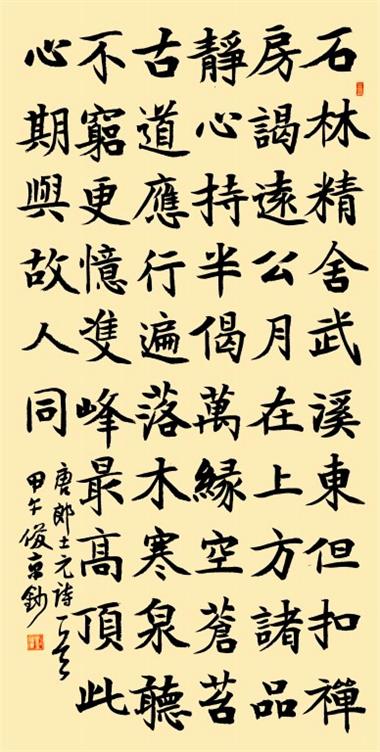 石林精舍武溪東但扣禪
房謁遠公月在上方諸品
靜心持半偈萬緣空蒼苔
古道應行遍落木寒泉聽
不窮更憶雙峰最高頂此
心期與故人同
唐郎士元詩一首
甲午俊京鈔